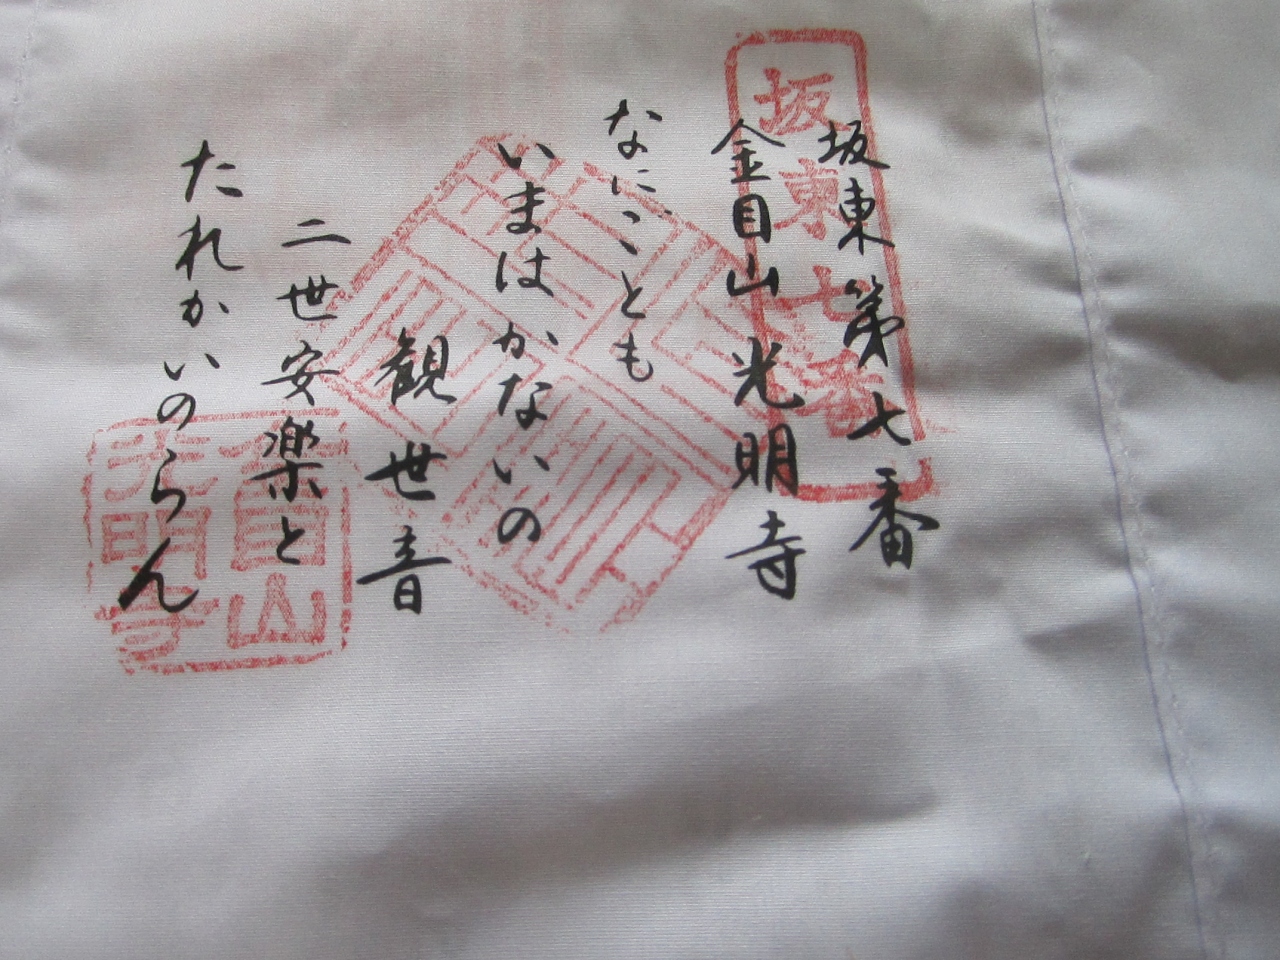 坂東第七番
金目山光明寺
なにことも
いまはかないの
観世音
二世安楽と
たれかいのらん
坂東七番
金目山
光明寺